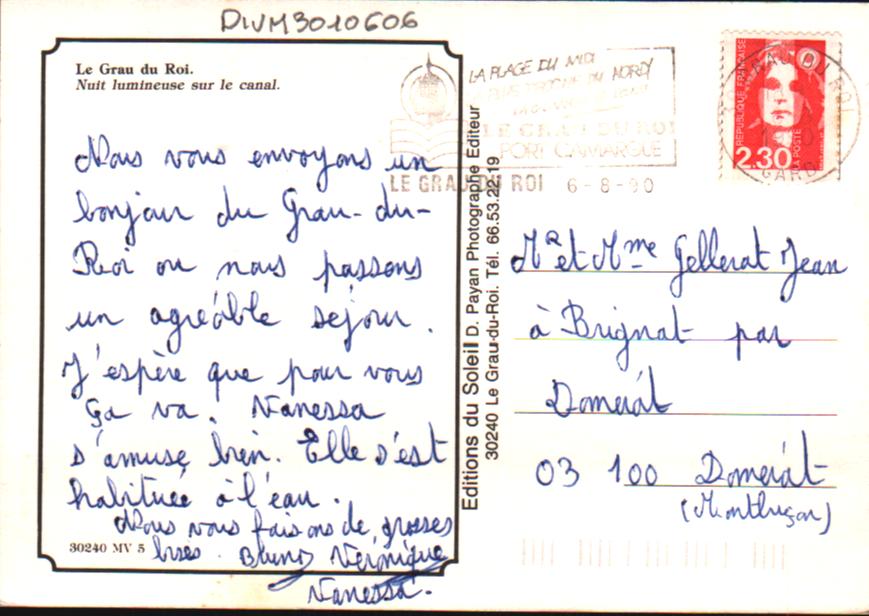 DIVM3010606
Le Grau du Roi.
Nuit lumineuse sur le canal.
Nous vous envoyons un
bonjour du Grau-du-
Roi ou nous passons
un agréable séjour.
J'espère que pour vous
ça va. Vanessa
s'amuse bien. Elle s'est
habituée à l'eau.
Nous vous faisons de grosses
bises. Bruno Véronique
Vanessa.
30240 MV 5
Editions du Soleil D. Payan Photographe Editeur
30240 Le Grau-du-Roi. Tél. 66.53.22.19
LA PLAGE DU MIDI
PLUS PROCHE DU NORD
LE GRAU DU ROI
PORT CAMARGUE
LE GRAU DU ROI 6-8-90
REPUBLIQUE FRANÇAISE
2.30
LA POSTE
GRAU DU ROI
GARD
Mr et Mme Gellerat Jean
à Brignat par
Domérat
03 100 Domérat
(Montluçon)